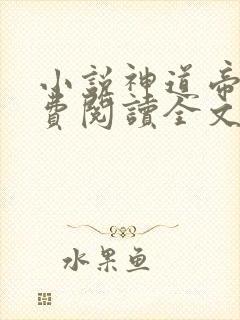 小説神道帝
費閱讀全文
水果鱼